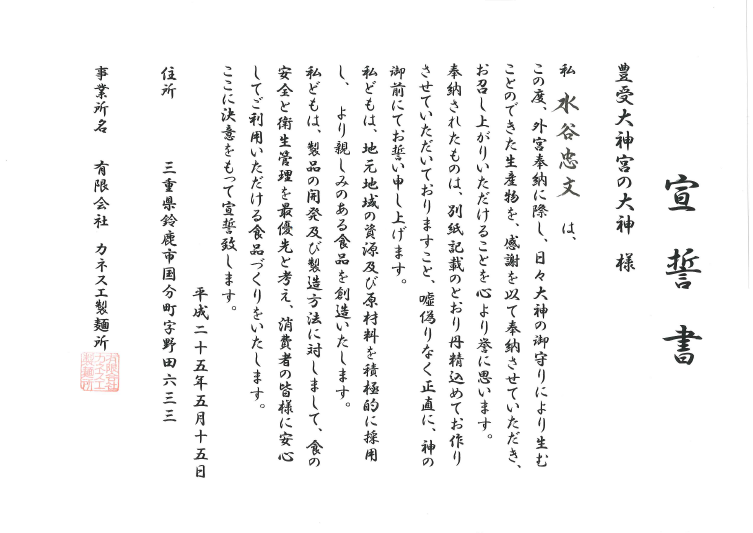 宣誓書
豊受大神宮の大神 様
私 水谷忠文 は、
この度、外宮奉納に際し、日々大神の御守りにより生む
ことのできた生産物を、感謝を以て奉納させていただき、
お召し上がりいただけることを心より誉に思います。
奉納されたものは、別紙記載のとおり丹精込めてお作り
させていただいておりますこと、嘘偽りなく正直に、神の
御前にてお誓い申し上げます。
私どもは、地元地域の資源及び原材料を積極的に採用
し、より親しみのある食品を創造いたします。
私どもは、製品の開発及び製造方法に対しまして、食の
安全と衛生管理を最優先と考え、消費者の皆様に安心
してご利用いただける食品づくりをいたします。
ここに決意をもって宣誓致します。
平成二十五年五月十五日
住所 三重県鈴鹿市国分町字野田六三三
事業所名 有限会社 カネスエ製麺所
有限会社
カネスエ
製麺所